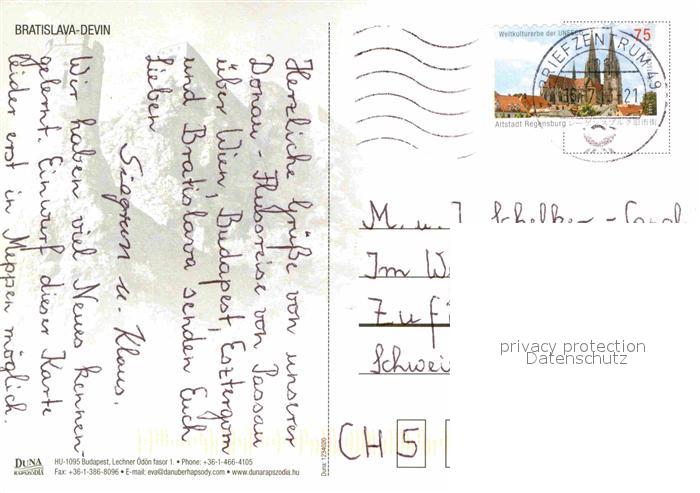 BRATISLAVA-DEVIN
Herzliche Grüße von unserer
Donau-Flussreise von Passau
über Wien, Budapest, Esztergom
und Bratislava senden Euch
Lieben
Siegrun u. Klaus.
Wir haben viel Neues kennen-
gelernt. Einwurf dieser Karte
leider erst in Meppen möglich.
DUNA
RAPSZÓDIA
HU-1095 Budapest, Lechner Ödön fasor 1. • Phone: +36-1-466-4105
Fax: +36-1-386-8096 • E-mail: eva@danuberhapsody.com • www.dunarapszodia.hu
Duna: 1234020
Weltkulturerbe der UNESCO
75
Altstadt Regensburg レーゲンスブルク旧市街
BRIEFZENTRUM 49
21
M. u.
Im W
Zuf
Schwei
CH 5
privacy protection
Datenschutz